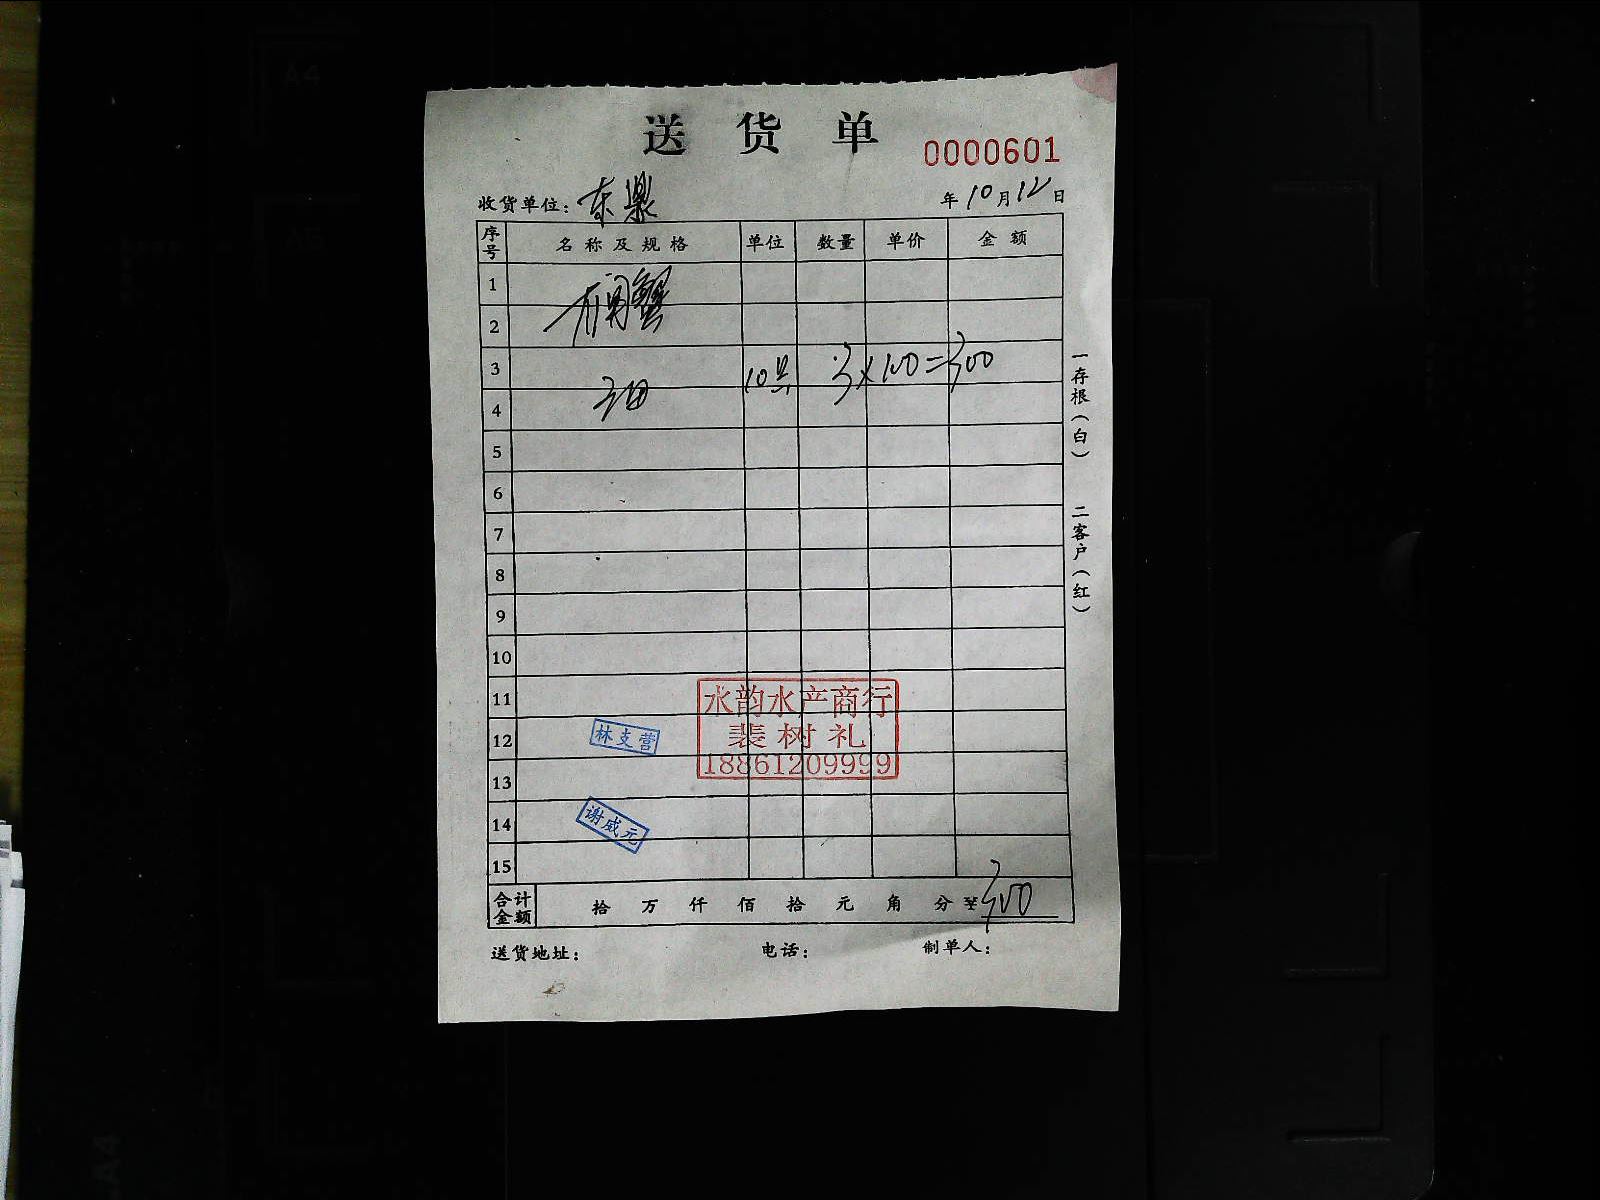 送货单
0000601
收货单位：东鼎
年10月12日
序号 名称及规格 单位 数量 单价 金额
1
蟹
2
3 10只 3×100=300
4
5
6
7
8
9
10
11
12
13
14
15
水韵水产商行
裴树礼
18861209999
林支营
谢威元
合计金额 拾 万 仟 佰 拾 元 角 分 ¥300
送货地址： 电话： 制单人：
一存根（白）
二客户（红）
A4
A5
A4